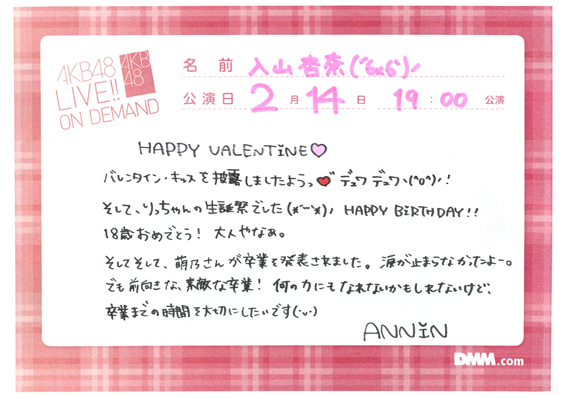 AKB48
LIVE!!
ON DEMAND
AKB
48
名前 入山杏奈(´6x6`)ﾉ
公演日 2月14日 19:00公演
HAPPY VALENTINE
バレンタイン・キッスを披露しましたようっ デュワ デュワヽ(^o^)ﾉ!
そして、りっちゃんの生誕祭でした(*˘︶˘*)ﾉ HAPPY BIRTHDAY!!
18歳おめでとう! 大人やなぁ。
そしてそして、萌乃さんが卒業を発表されました。涙が止まらなかったよー。
でも前向きな、素敵な卒業! 何の力にもなれないかもしれないけど、
卒業までの時間を大切にしたいです(・ᴗ・)
ANNIN
DMM.com